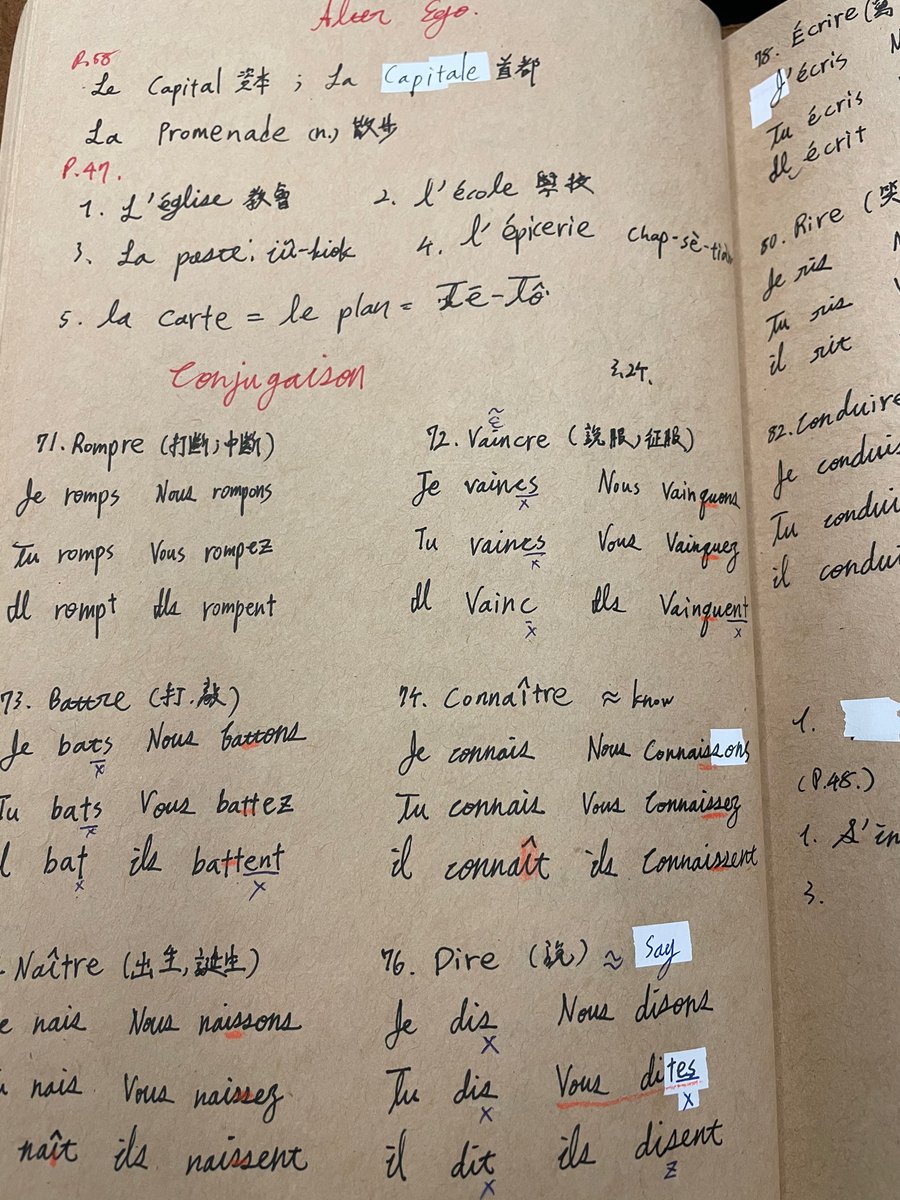 Alter Ego.
P.56
Le Capital 資本 ; La Capitale 首都
La Promenade (n.) 散步
P.47.
1. L'église 教會 2. l'école 學校
3. La poste: iû-kiok 4. l'épicerie chap-sè-tiàm
5. la carte = le plan = Tē-Tô͘
Conjugaison 3.24.
71. Rompre (打斷; 中斷) 72. Vaincre (說服, 征服)
Je romps Nous rompons Je vaincs Nous vainquons
Tu romps Vous rompez Tu vaincs Vous vainquez
Il rompt Ils rompent Il vainc Ils vainquent
73. Battre (打.敲) 74. Connaître ≈ know
Je bats Nous battons Je connais Nous connaissons
Tu bats Vous battez Tu connais Vous connaissez
il bat ils battent il connaît ils connaissent
Naître (出生, 誕生) 76. Dire (說) ≈ Say
nais Nous naissons Je dis Nous disons
nais Vous naissez Tu dis Vous dites
naît ils naissent il dit ils disent
78. Écrire (寫
J'écris
Tu écris
Il écrit
80. Rire (笑
Je ris
Tu ris
il rit
82. Conduire
Je conduis
Tu condui
il condui
1.
(P.48.)
1. S'in
3.